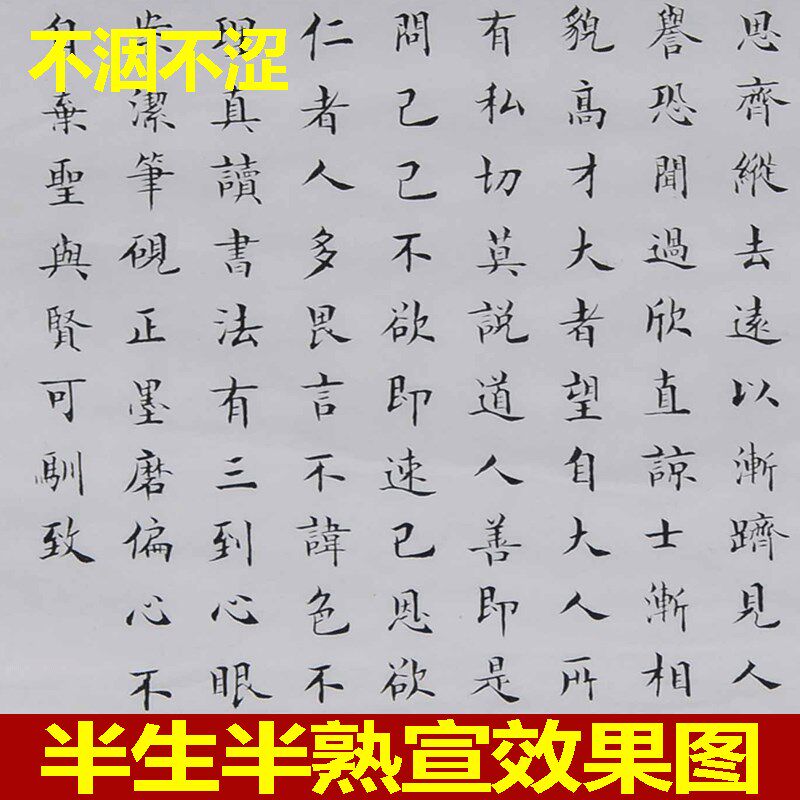 不洇不涩
思齊縱去遠以漸躋見人
譽恐聞過欣直諒士漸相
貌高才大者望自大人所
有私切莫說道人善即是
問己己不欲即速已恩欲
仁者人多畏言不諱色不
真讀書法有三到心眼
潔筆硯正墨磨偏心不
自棄聖與賢可馴致
半生半熟宣效果图